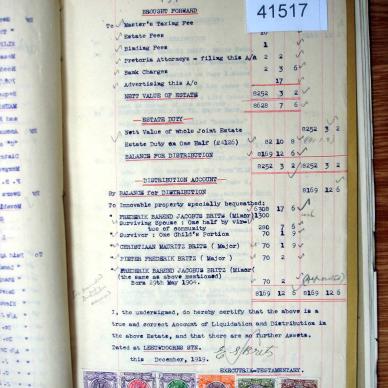 41517
BROUGHT FORWARD
To Master's Taxing Fee
Estate Fees
Binding Fees 1
Pretoria Attorneys - filing this A/c 2 2
Bank Charges 2 3 6
Advertising this A/c 17
NETT VALUE OF ESTATE 8252 3 2
8628 7 6
ESTATE DUTY
Nett Value of whole Joint Estate 8252 3 2
Estate Duty on One Half (£4126) 82 10 8
BALANCE FOR DISTRIBUTION 8169 12 6
8252 3 2 8252 3 2
DISTRIBUTION ACCOUNT
By BALANCE for DISTRIBUTION 8169 12 6
To Immovable property specially bequeathed:
FREDERIK BAREND JACOBUS BRITS (Minor) 1300
6308 17 6
Surviving Spouse : One half by virtue of community 280 7 6
Survivor : One Child's Portion 70 1 9
CHRISTIAAN MAURITZ BRITS ( Major) 70 1 9
PIETER FREDERIK BRITS ( Major) 70 2
FREDERIK BAREND JACOBUS BRITS (Minor)
(the same as above mentioned)
Born 29th May 1904. 70 2
8169 12 6 8169 12 6
I, the undersigned, do hereby certify that the above is a
true and correct Account of Liquidation and Distribution in
the above Estate, and that there are no further Assets.
Dated at LEEUWDOORNS STN.
this December, 1919.
EXECUTRIX-TESTAMENTARY.